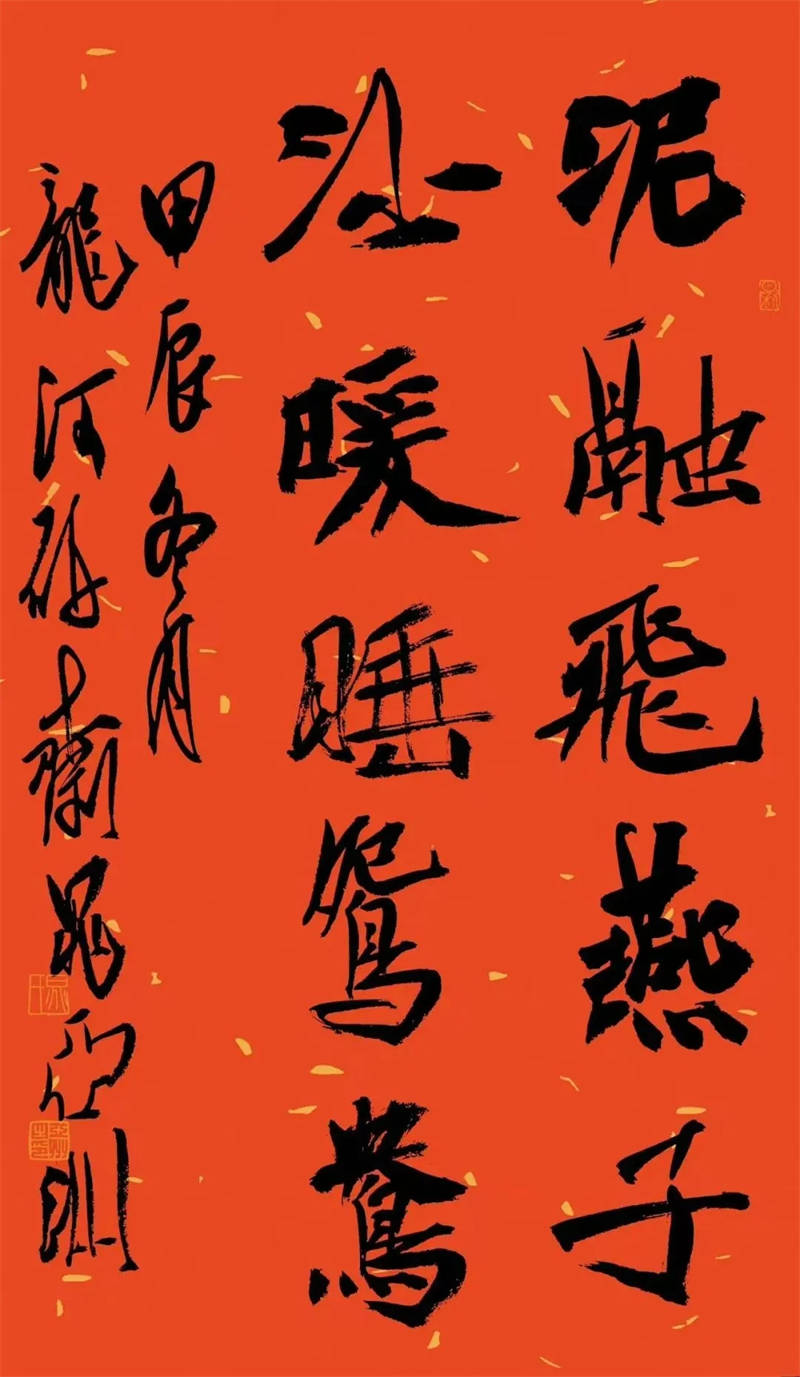 泥融飛燕子
沙暖睡鴛鴦
甲辰冬月
龍河晁亞洲